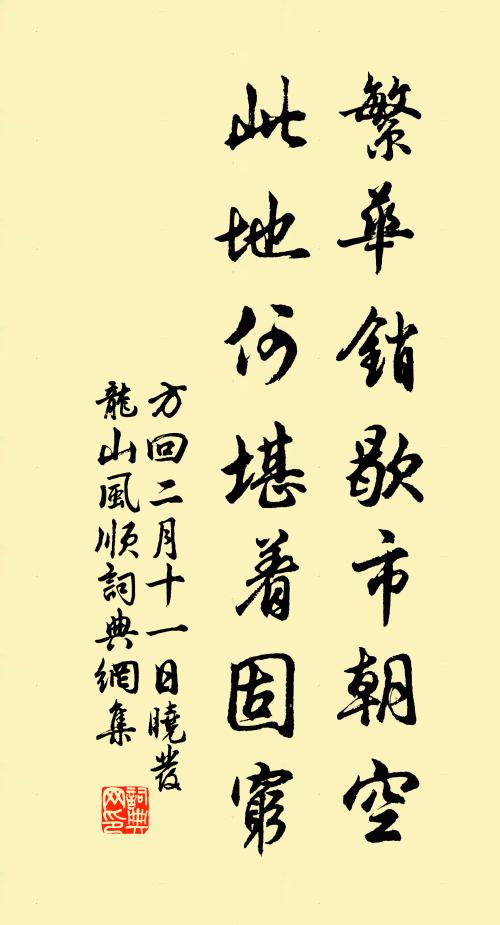 繁華銷歇市朝空
此地何堪着固窮
方回二月十一日曉發
龍山風順詞典網集
詞典网印